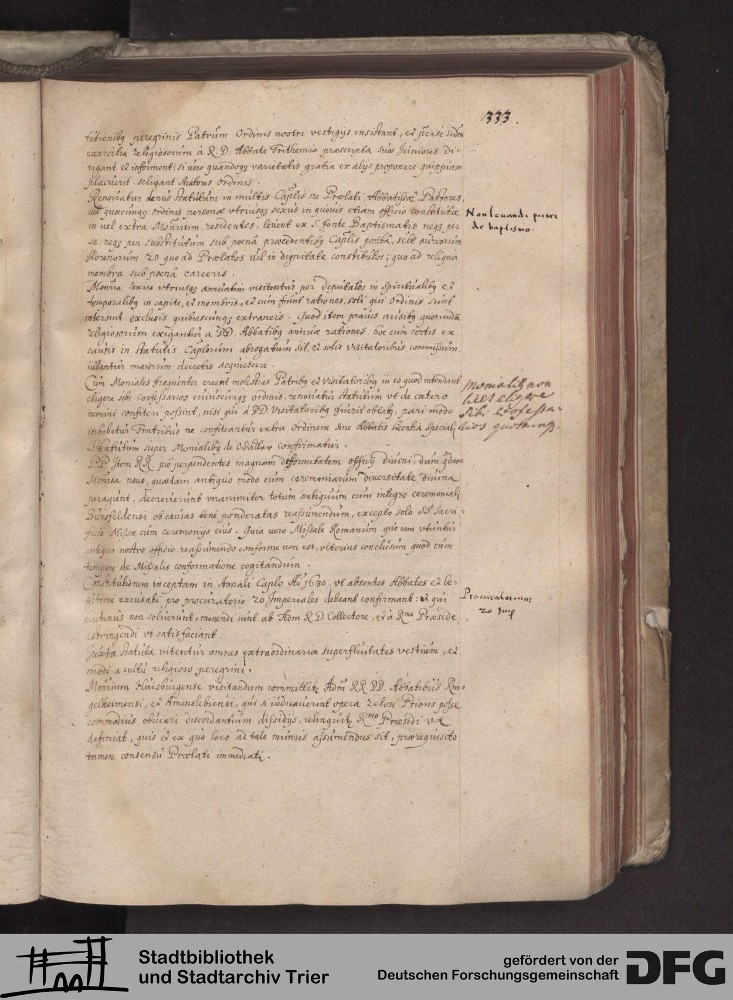 333.
tutionibq peregrinis Patrum Ordinis nostri vestigijs insistant, et
exercitia religiosorum à R.D. Abbate Trithemio præscripta suos Juniores di-
rigant et informent; si vero quandoqz varietatis gratia ex alijs proponere quippiam
placuerit seligant Autores Ordinis.
Renovatur denuo statutum in multis Caplis ne Prælati, Abbatissæ, Pastores,
vel quæcunqz ordinis personæ vtriusqz sexus in quovis etiam officio constitutæ
in vel extra Monrium residentes, levent ex S. fonte Baptismatis neqz per
se, neqz per substitutum sub poenâ præcedentibq Caplis positâ, scilt aureorum
florenorum 20 quo ad Prælatos vel in dignitate constitutos; quo ad reliqua
membra sub poenâ carceris.
Non levandi pueri
de baptismo
Monria sexus vtriusqz annuatim visitentur per deputatos in Spiritualibq et
temporalibq in capite, et membris, et cum fiunt rationes, soli qui Ordinis sunt
intersint exclusis quibuscunqz extraneis. Quod item pravis ausibq quorundam
religiosorum exigantur a DD. Abbatibq annuæ rationes, hoc cum certis ex
causis in statutis Caplorum abrogatum sit, et solis Visitatoribus commissum,
iubentur maiorum decretis acquiescere.
Cum Moniales frequenter creent molestias Patribq et Visitatoribq in eo quod intendant
eligere sibi Confessarios cuiuscunqz ordinis, renovatur statutum vt de cætero
nemini confiteri possint, nisi qui à DD. Visitatoribq fuerit oblatq, pari modo
inhibetur Fratribus ne confiteantur extra Ordinem sine Abbatis licentia speciali
Monialibq non
licet eligere
sibi confessa-
rios quoscunqz.
Statutum super Monialibq de confirmatur.
PP. Item RR. perpendentes magnam difformitatem officij divini, dum qdam
Monria novo, quædam antiquo modo cum ceremoniarum diversitate divina
peragunt, decreverunt vnanimiter totum antiquum cum integro ceremoniali
Bursfeldensi ob causas bene ponderatas reassumendum, excepto solo Sacri-
ficio Missæ cum ceremonijs eius. Quia vero Missale Romanum quo iam vtuntur
antiquo nostro officio reassumendo conforme non est, vlterius conclusum quod cum
tempore de Missalis conformatione cogitandum.
Constitutionem inceptam in Annali Caplo Ao 1630, vt absentes Abbates et le-
gitime excusati pro procuratorio 20 Imperiales debeant confirmant: et qui
hactenus non solverunt, monendi sunt ab Adm R.D. Collectore, et a Rmo Præside
adstringendi vt satisfaciant.
Procuratorium
20 Imp
Juxta statuta vitentur omnes extraordinariæ superfluitates vestium, et
modi a cultu religioso peregrini.
Monrium Huisburgense visitandum committitr Adm RR. DD. Abbatibus Rin-
gelheimensi, et Ameuslebiensi, qui si iudicaverint opera zelosi Prioris posse
commodius obviari discordantium dissidijs, relinquitr Rmo Præsidi vt
definiat, quis et ex quo loco ad tale munus assumendus sit, prærequisito
tamen consensu Prælati immediati.
Stadtbibliothek
und Stadtarchiv Trier
gefördert von der
Deutschen Forschungsgemeinschaft
DFG